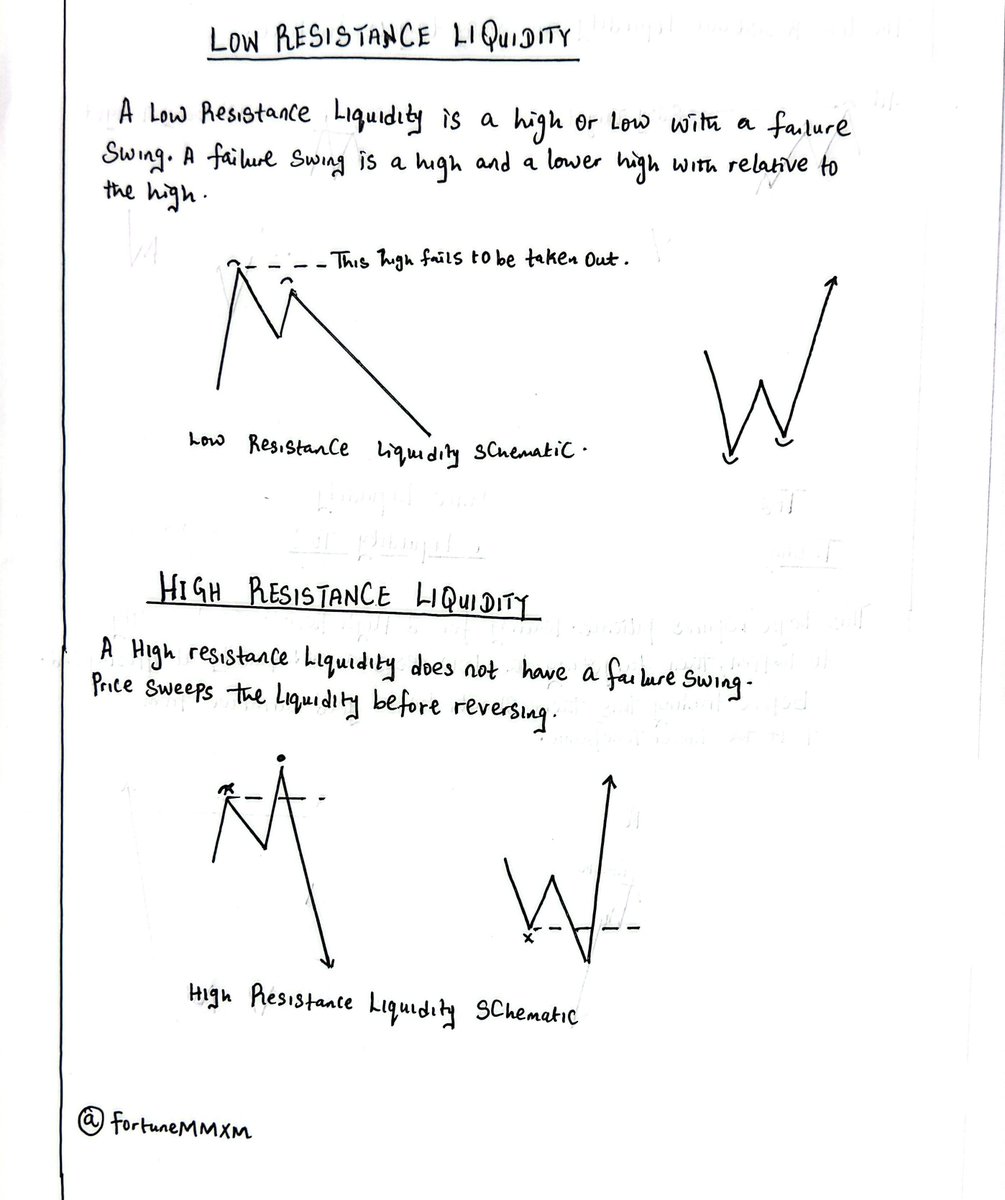 LOW RESISTANCE LIQUIDITY
A Low Resistance Liquidity is a high or Low with a failure
Swing. A failure Swing is a high and a lower high with relative to
the high.
This high fails to be taken out.
Low Resistance Liquidity Schematic.
HIGH RESISTANCE LIQUIDITY
A High resistance Liquidity does not have a failure Swing.
Price Sweeps the Liquidity before reversing.
x
x
High Resistance Liquidity SChematic
@fortuneMMXM